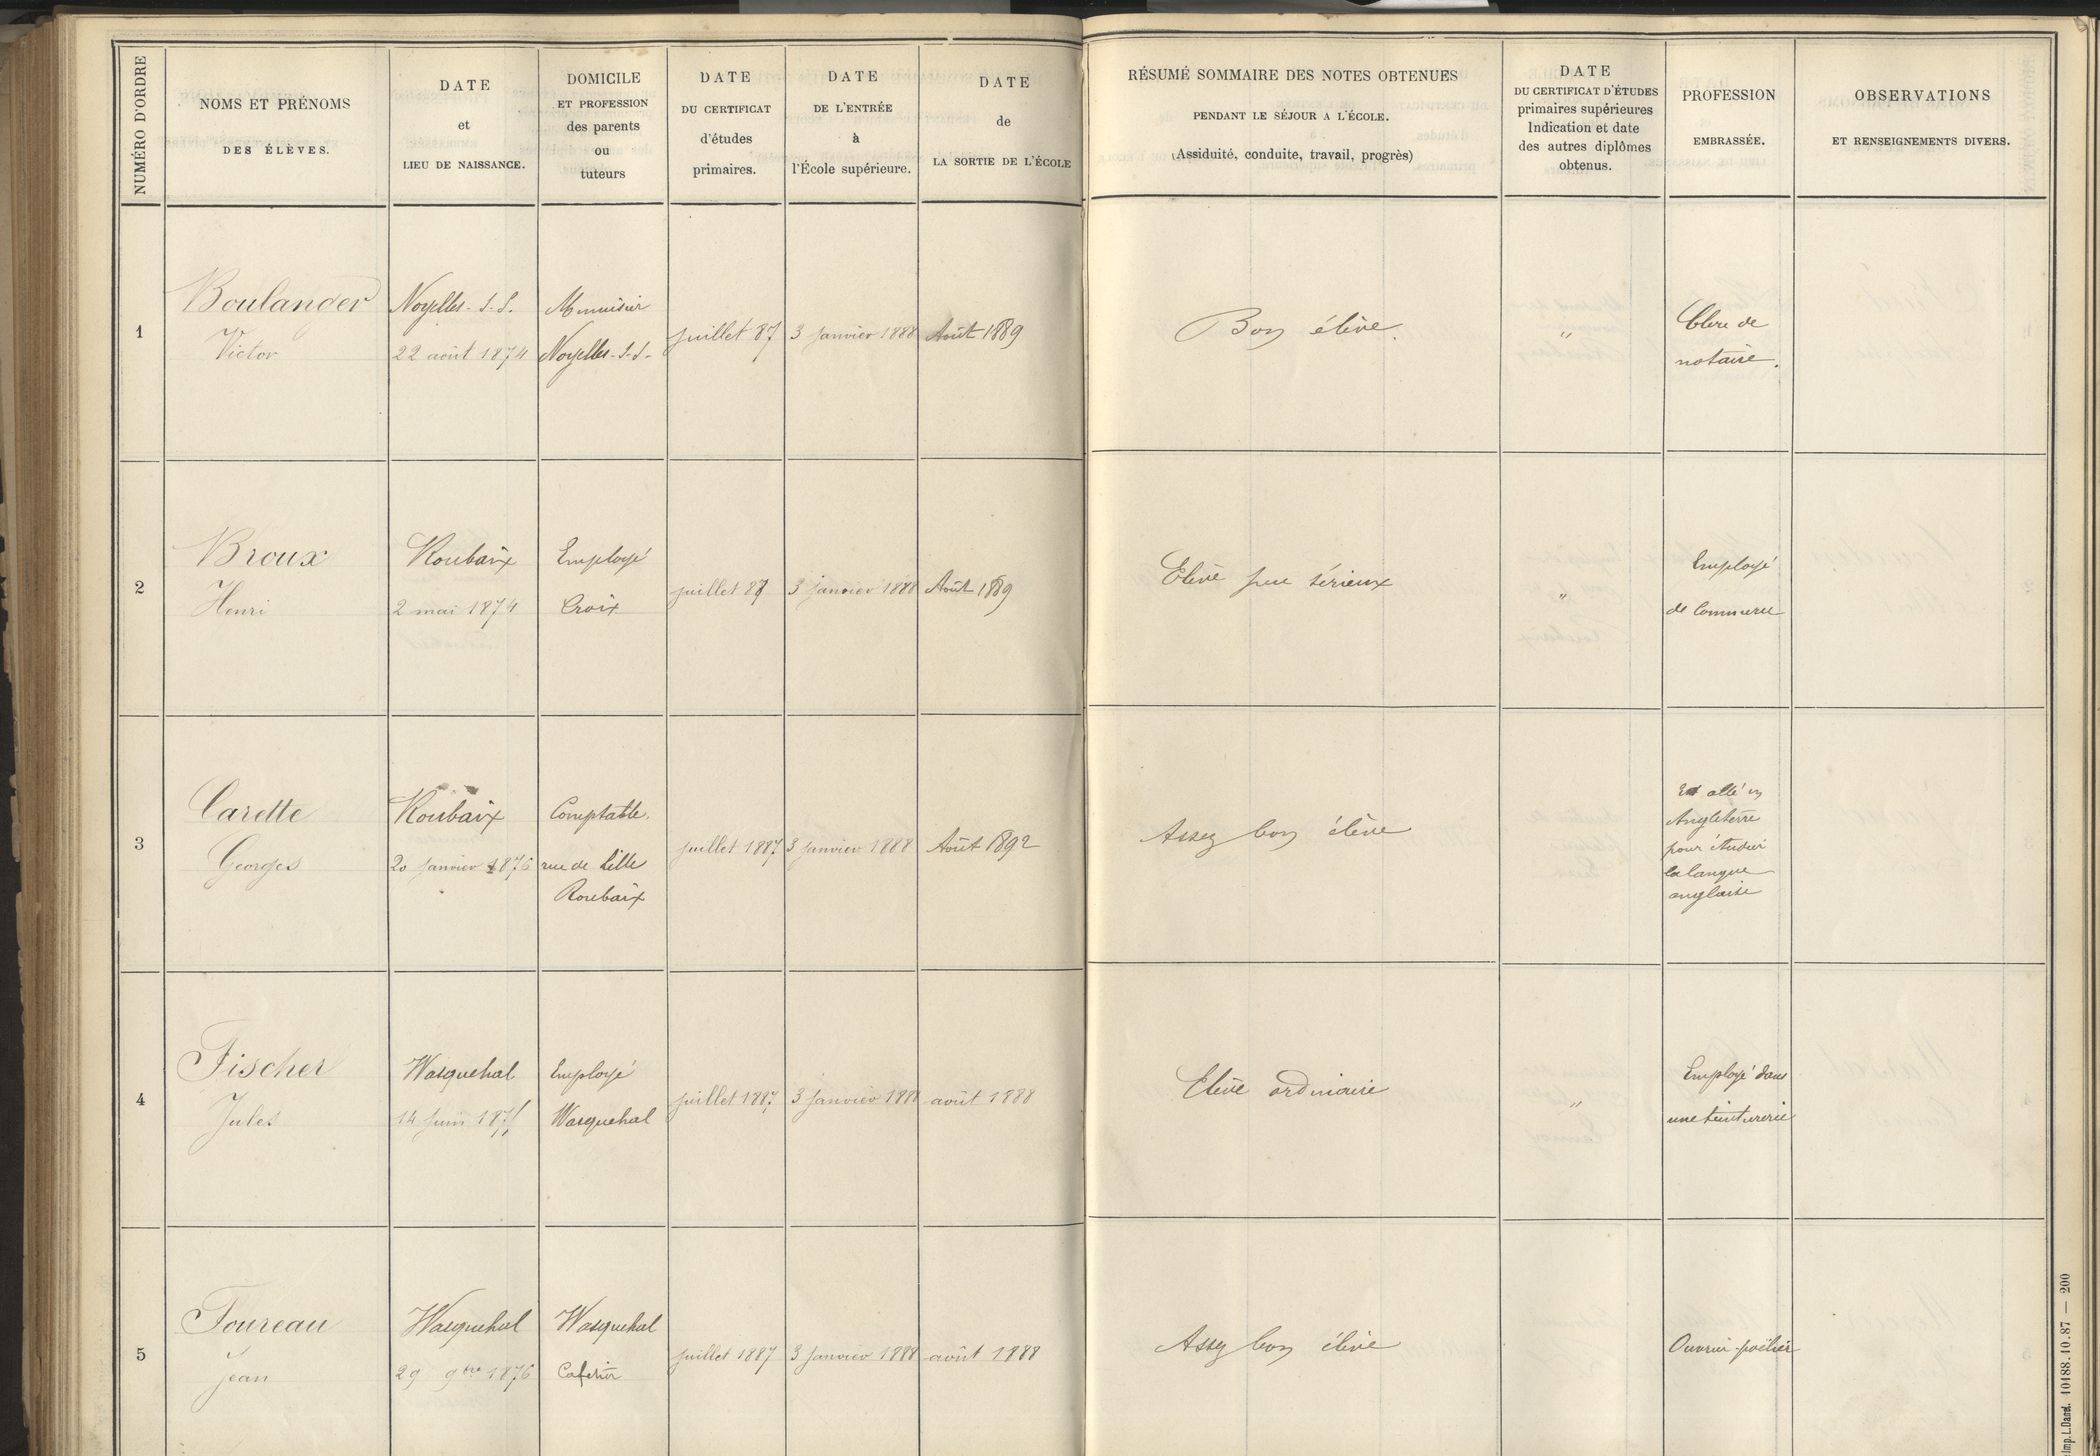 NUMÉRO D'ORDRE
NOMS ET PRÉNOMS
DES ÉLÈVES.
DATE
et
LIEU DE NAISSANCE.
DOMICILE
ET PROFESSION
des parents
ou
tuteurs
DATE
DU CERTIFICAT
d'études
primaires.
DATE
DE L'ENTRÉE
à
l'École supérieure.
DATE
de
LA SORTIE DE L'ÉCOLE
RÉSUMÉ SOMMAIRE DES NOTES OBTENUES
PENDANT LE SÉJOUR A L'ÉCOLE.
(Assiduité, conduite, travail, progrès)
DATE
DU CERTIFICAT D'ÉTUDES
primaires supérieures
Indication et date
des autres diplômes
obtenus.
PROFESSION
EMBRASSÉE.
OBSERVATIONS
ET RENSEIGNEMENTS DIVERS.
1
Boulanger
Victor
Noyelles-S.-S.
22 août 1874
Menuisier
Noyelles-S.-S-
juillet 87
3 janvier 1888
Août 1889
Bon élève.
"
Clerc de
notaire.
2
Broux
Henri
Roubaix
2 mai 1874
Employé
Croix
juillet 87
3 janvier 1888
Août 1889
Elève peu sérieux
"
Employé
de Commerce
3
Carette
Georges
Roubaix
20 janvier 1876
Comptable.
rue de Lille
Roubaix
juillet 1887
3 janvier 1888
Août 1892
Assez bon élève
Est allé en
Angleterre
pour étudier
la langue
anglaise
4
Fischer
Jules
Wasquehal
14 juin 187
Employé
Wasquehal
juillet 1887
3 janvier 1888
août 1888
Elève ordinaire
"
Employé dans
une teinturerie
5
Foureau
Jean
Wasquehal
29 9bre 1876
Wasquehal
Cafetier
juillet 1887
3 janvier 1888
août 1888
Assez bon élève
Ouvrier-poëlier
Imp. L. Danel. 10188.10.87 — 200